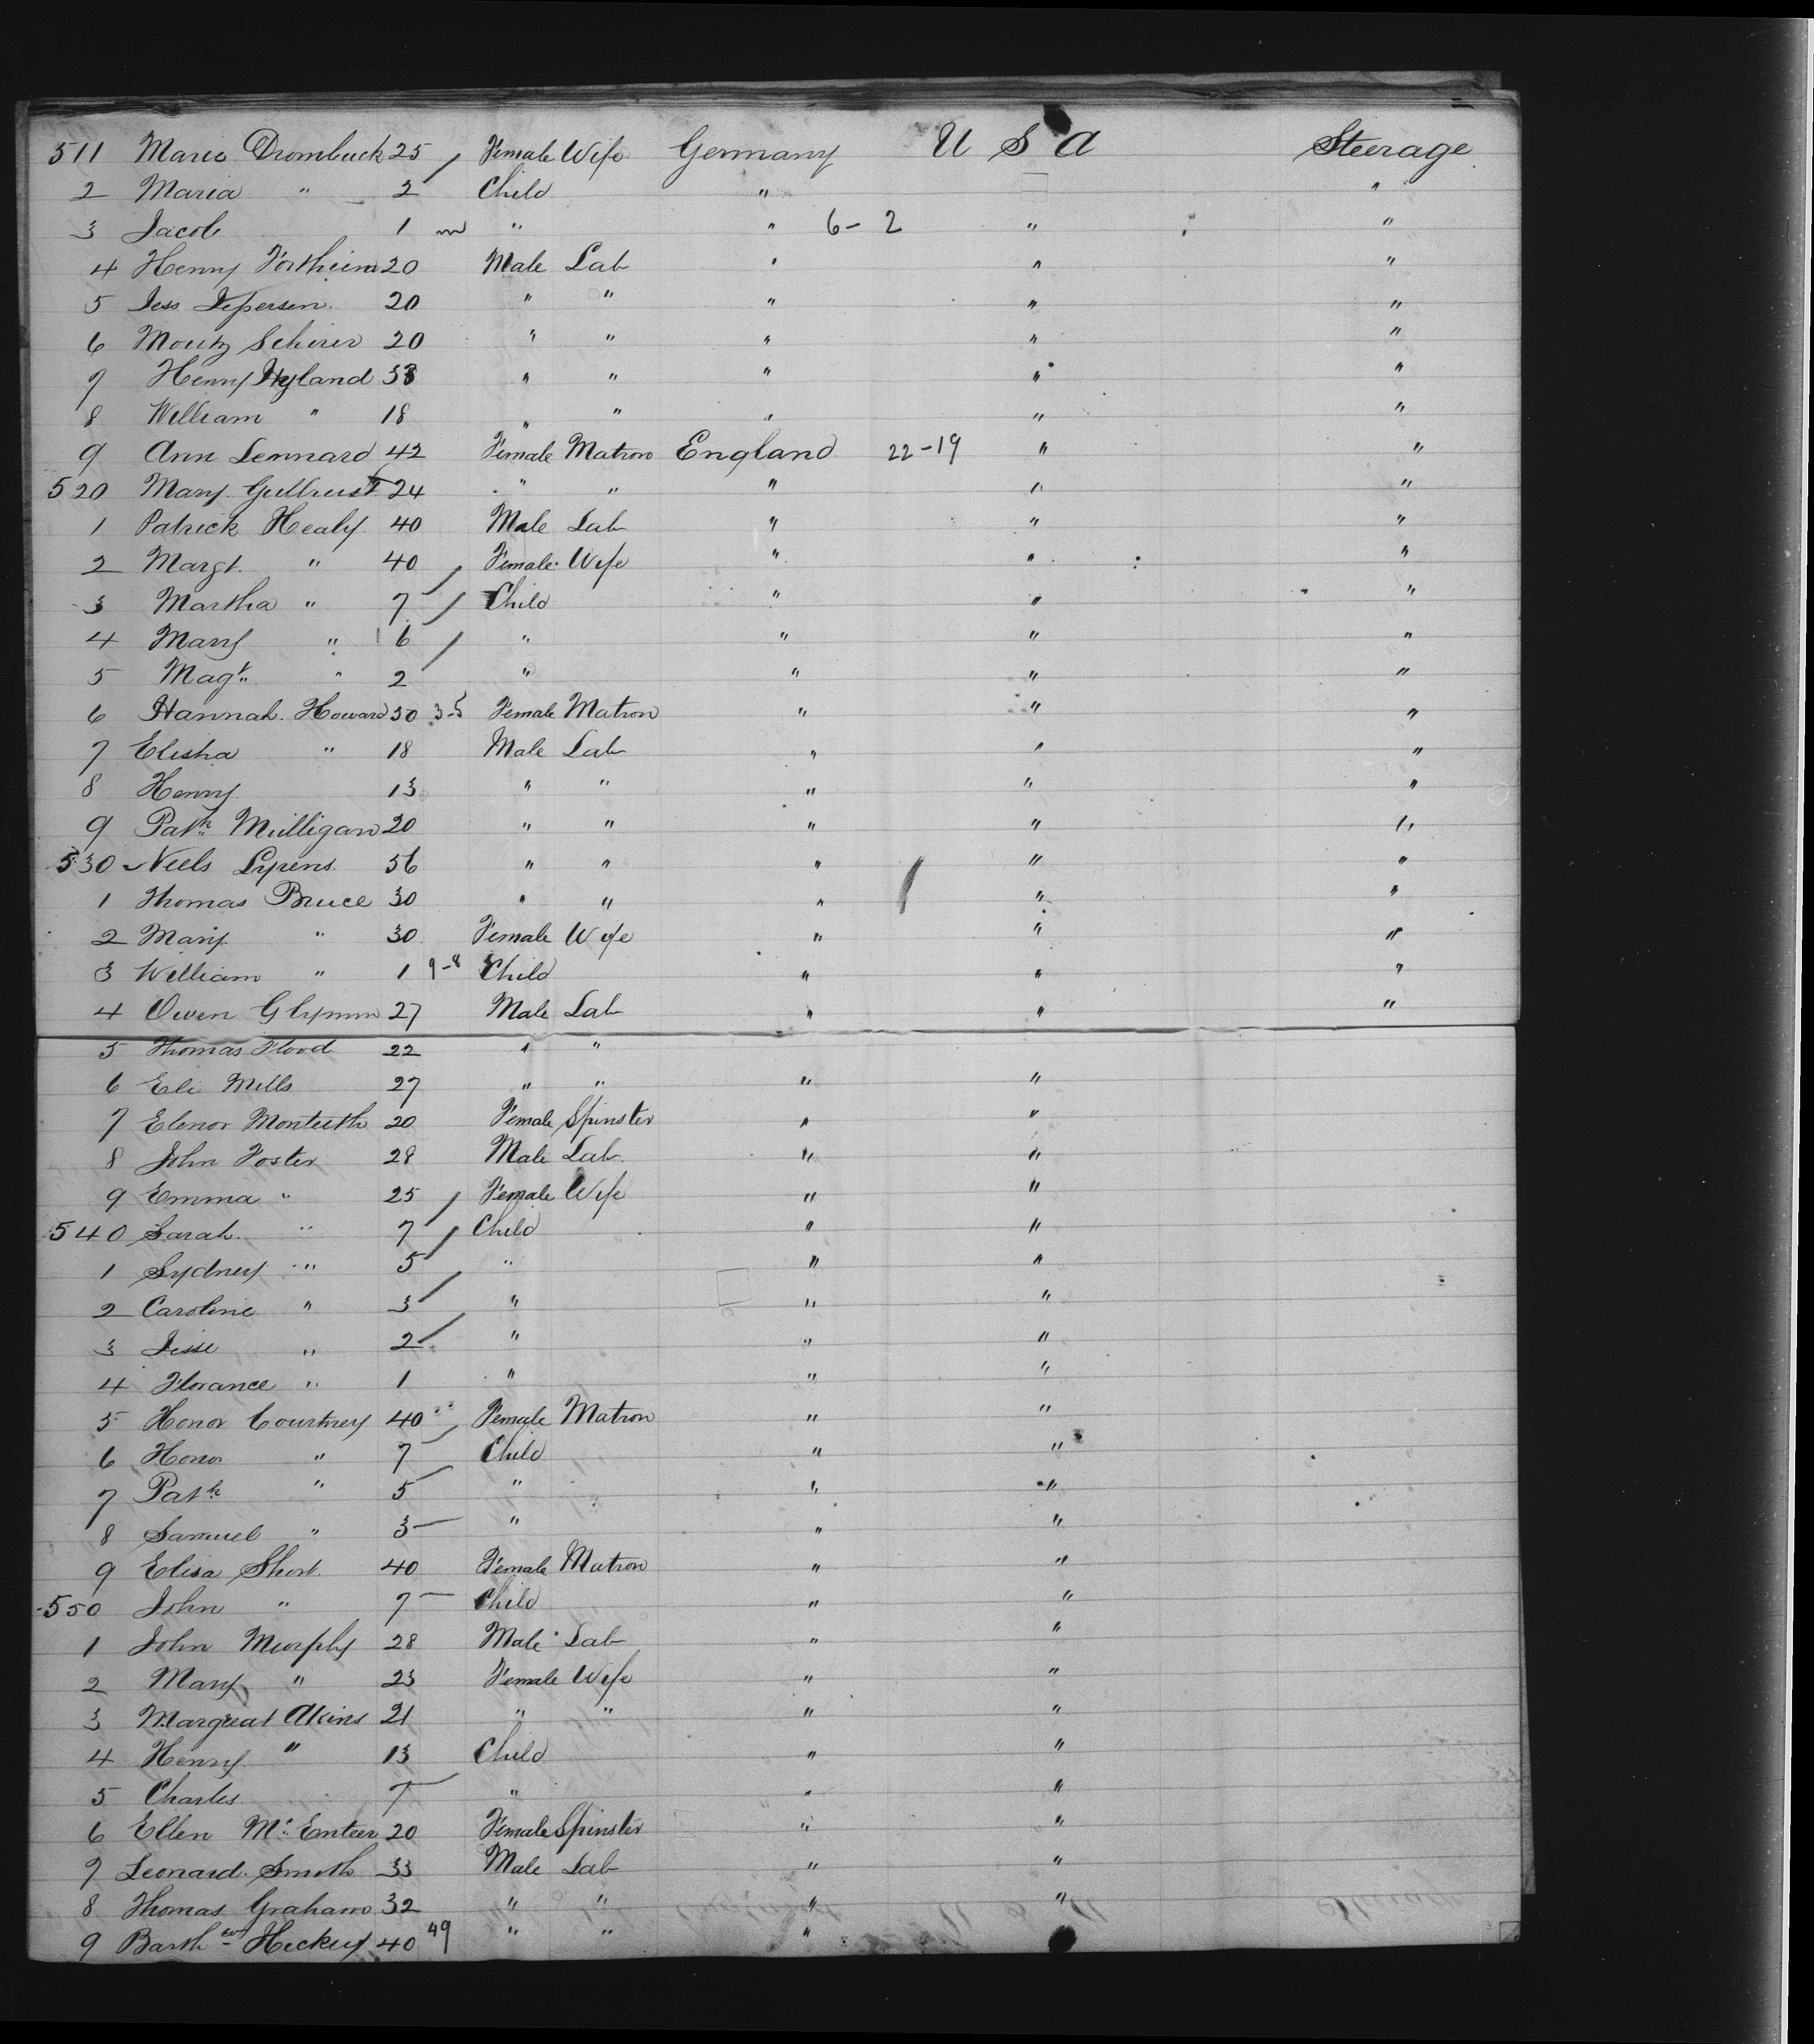 511 Marie Drombuck 25 Female Wife Germany U S A Steerage
2 Maria " 2 Child " "
3 Jacob 1 " " 6-2 " "
4 Henry Fortheim 20 Male Lab " " "
5 Jess Jepersen 20 " " " " "
6 Moritz Schirer 20 " " " " "
7 Henry Hyland 38 " " " " "
8 William " 18 " " " " "
9 Ann Lennard 42 Female Matron England 22-19 " "
520 Mary 24 " " " " "
1 Patrick Healy 40 Male Lab " " "
2 Margt. " 40 Female Wife " " "
3 Martha " 7 Child " " "
4 Mary " 6 " " " "
5 Magt. " 2 " " " "
6 Hannah Howard 50 3-5 Female Matron " " "
7 Elisha " 18 Male Lab " " "
8 Henry 13 " " " " "
9 Patk Mulligan 20 " " " " "
530 Neels Lyrens 56 " " " " "
1 Thomas Bruce 30 " " " " "
2 Mary " 30 Female Wife " " "
3 William " 1 9-8 Child " " "
4 Owen Glynnn 27 Male Lab " " "
5 Thomas Flood 22 " "
6 Eli Mills 27 " " " "
7 Elenor Monteith 20 Female Spinster " "
8 John Foster 28 Male Lab " "
9 Emma " 25 Female Wife " "
540 Sarah " 7 Child " "
1 Sydney " 5 " " "
2 Caroline " 3 " " "
3 Jesse " 2 " " "
4 Florance " 1 " " "
5 Honor Courtney 40 Female Matron " "
6 Honor " 7 Child " "
7 Patk " 5 " " "
8 Samuel " 3 " " "
9 Elisa Short 40 Female Matron " "
550 John " 7 Child " "
1 John Murphy 28 Male Lab " "
2 Mary " 23 Female Wife " "
3 Margreat Akins 21 " " " "
4 Henry " 13 Child " "
5 Charles 7 " " "
6 Ellen Mc Enteer 20 Female Spinster " "
7 Leonard Smith 33 Male Lab " "
8 Thomas Graham 32 " " " "
9 Barthew Hickey 40 49 " " "